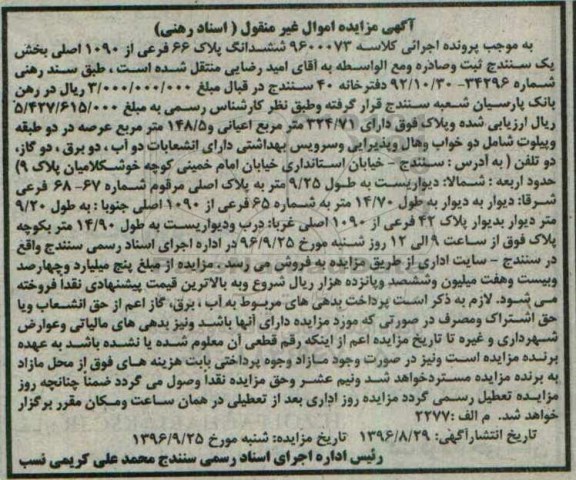 آگهی مزایده اموال غیر منقول ( اسناد رهنی)
به موجب پرونده اجرائی کلاسه ۹۶۰۰۰۷۳ ششدانگ پلاک ۶۶ فرعی از ۱۰۹۰ اصلی بخش
یک سنندج ثبت وصادره ومع الواسطه به آقای امید رضایی منتقل شده است ، طبق سند رهنی
شماره ۳۴۲۹۶- ۹۲/۱۰/۳۰ دفترخانه ۴۰ سنندج در قبال مبلغ ۳/۰۰۰/۰۰۰/۰۰۰ ریال در رهن
بانک پارسیان شعبه سنندج قرار گرفته وطبق نظر کارشناس رسمی به مبلغ ۵/۴۲۷/۶۱۵/۰۰۰
ریال ارزیابی شده وپلاک فوق دارای ۳۲۴/۷۱ متر مربع اعیانی و۱۴۸/۵ متر مربع عرصه در دو طبقه
وپیلوت شامل دو خواب وهال وپذیرایی وسرویس بهداشتی دارای انشعابات دو آب ، دو برق ، دو گاز،
دو تلفن ( به آدرس : سنندج - خیابان استانداری خیابان امام خمینی کوچه خوشکلامیان پلاک ۹)
حدود اربعه : شمالا: دیواریست به طول ۹/۲۵ متر به پلاک اصلی مرقوم شماره ۶۷- ۶۸ فرعی
شرقا: دیوار به دیوار به طول ۱۴/۷۰ متر به شماره ۶۵ فرعی از ۱۰۹۰ اصلی جنوبا : به طول ۹/۲۰
متر دیوار بدیوار پلاک ۴۲ فرعی از ۱۰۹۰ اصلی غربا: درب ودیواریست به طول ۱۴/۹۰ متر بکوچه
پلاک فوق از ساعت ۹ الی ۱۲ روز شنبه مورخ ۹۶/۹/۲۵ در اداره اجرای اسناد رسمی سنندج واقع
در سنندج - سایت اداری از طریق مزایده به فروش می رسد. مزایده از مبلغ پنج میلیارد وچهارصد
وبیست وهفت میلیون وششصد وپانزده هزار ریال شروع وبه بالاترین قیمت پیشنهادی نقدا فروخته
می شود. لازم به ذکر است پرداخت بدهی های مربوط به آب ، برق، گاز اعم از حق انشعاب ویا
حق اشتراک ومصرف در صورتی که مورد مزایده دارای آنها باشد ونیز بدهی های مالیاتی وعوارض
شهرداری و غیره تا تاریخ مزایده اعم از اینکه رقم قطعی آن معلوم شده یا نشده باشد به عهده
برنده مزایده است ونیز در صورت وجود مازاد وجوه پرداختی بابت هزینه های فوق از محل مازاد
به برنده مزایده مسترد‌خواهد شد ونیم عشر وحق مزایده نقداً وصول می گردد ضمناً چنانچه روز
مزایده تعطیل رسمی گردد مزایده روز اداری بعد از تعطیلی در همان ساعت ومکان مقرر برگزار
خواهد شد. م الف :۲۲۷۷
تاریخ انتشارآگهی: ۱۳۹۶/۸/۲۹ تاریخ مزایده: شنبه مورخ ۱۳۹۶/۹/۲۵
رئیس اداره اجرای اسناد رسمی سنندج محمد علی کریمی نسب